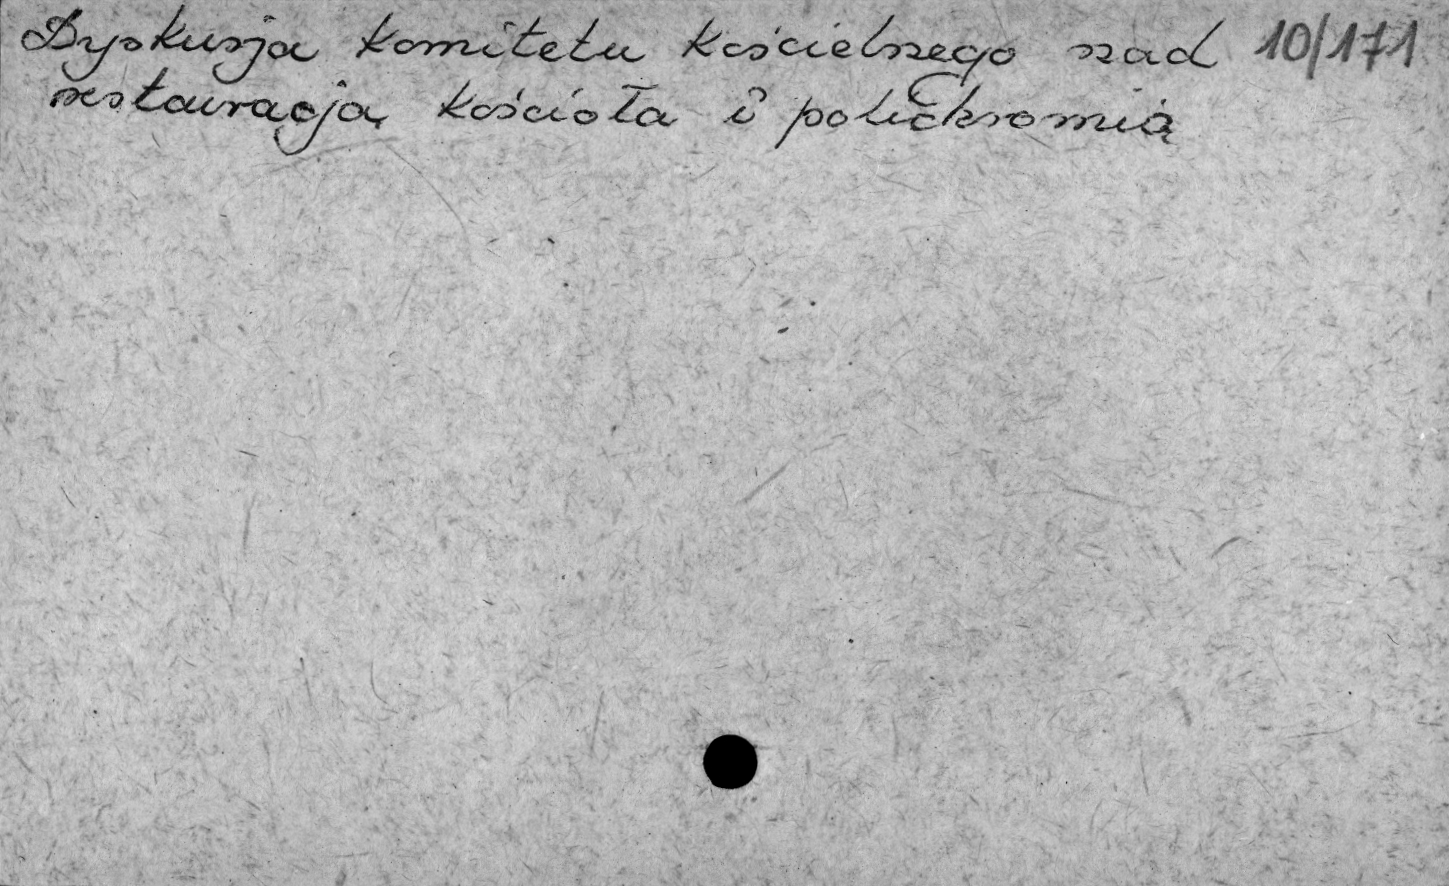 Dyskusja komitetu kościelnego nad 10/171
restauracją kościoła i polichromią